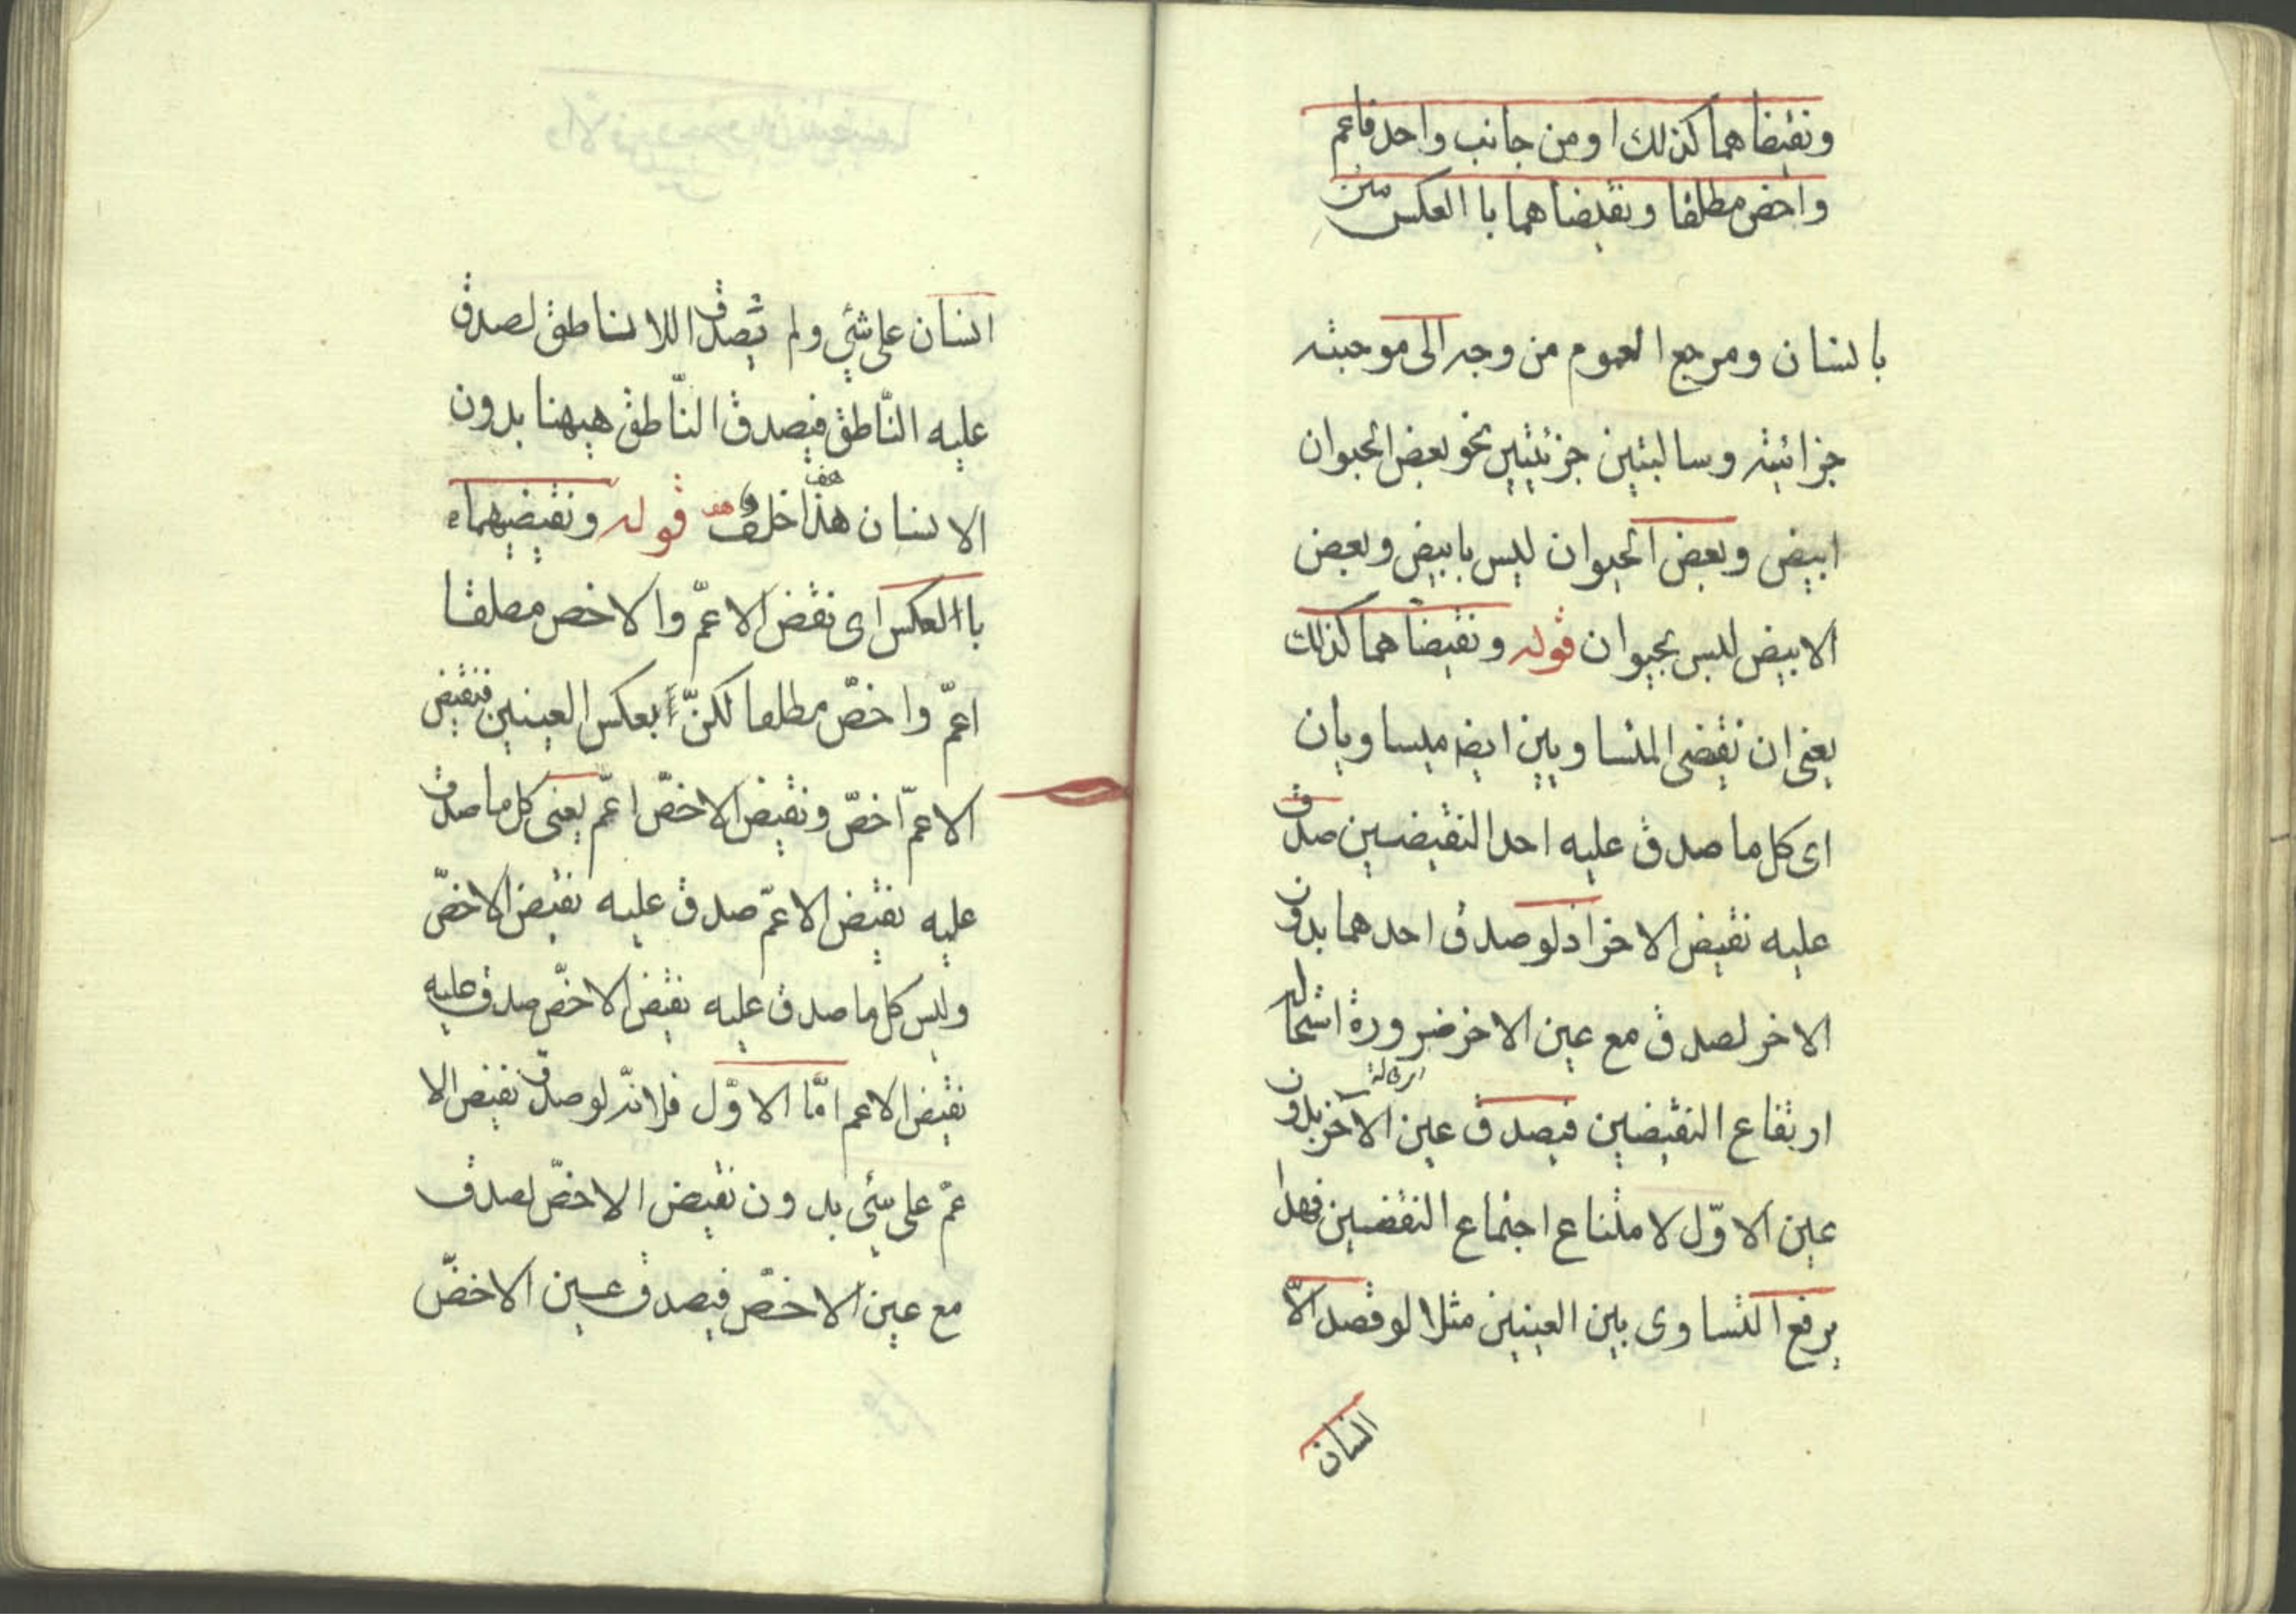 ونقيضاهما كذلك او من جانب واحد فاعم
واخص مطلقا ونقيضاهما با العكس متن
بانسان ومرجع العموم من وجه الى موجبته
جزائيته وسالبتين جزئيتين نحو بعض الحيوان
ابيض وبعض الحيوان ليس بابيض وبعض
الابيض ليس بحيوان قوله ونقيضاهما كذلك
يعنى ان نقيضى المتساويين ايضا ميساويان
اى كل ما صدق عليه احد النقيضين صدق
عليه نقيض الاخر اذ لو صدق احدهما بدون
الاخر لصدق مع عين الاخر ضرورة اشحاله
ارتفاع النقيضين فيصدق عين الآخر بدون
عين الاوّل لامتناع اجتماع النقضين فهذا
يرفع التساوى بين العينين مثلا لو فصد الاّ
انسان
انسان على شئي ولم يصدق اللاناطق لصدق
عليه النّاطق فيصدق النّاطق هيهنا بدون
الانسان هذا خلف هف قوله ونقيضيهماء
با العكس اى نقض الاعمّ والاخص مطلقا
اعمّ واخصّ مطلقا لكنّ بعكس العينين فنقيض
الاعمّ اخصّ ونقيض الاخصّ اعمّ يعنى كل ما صدق
عليه نقيض الاعمّ صدق عليه نقيض الاخصّ
وليس كل ما صدق عليه نقيض الاخصّ صدق عليه
نقيض الاعم امّا الاوّل فلانّه لو صدق نقيض الا
عمّ على شئي بدون نقيض الاخصّ لصدق
مع عين الاخصّ فيصدق عين الاخصّ